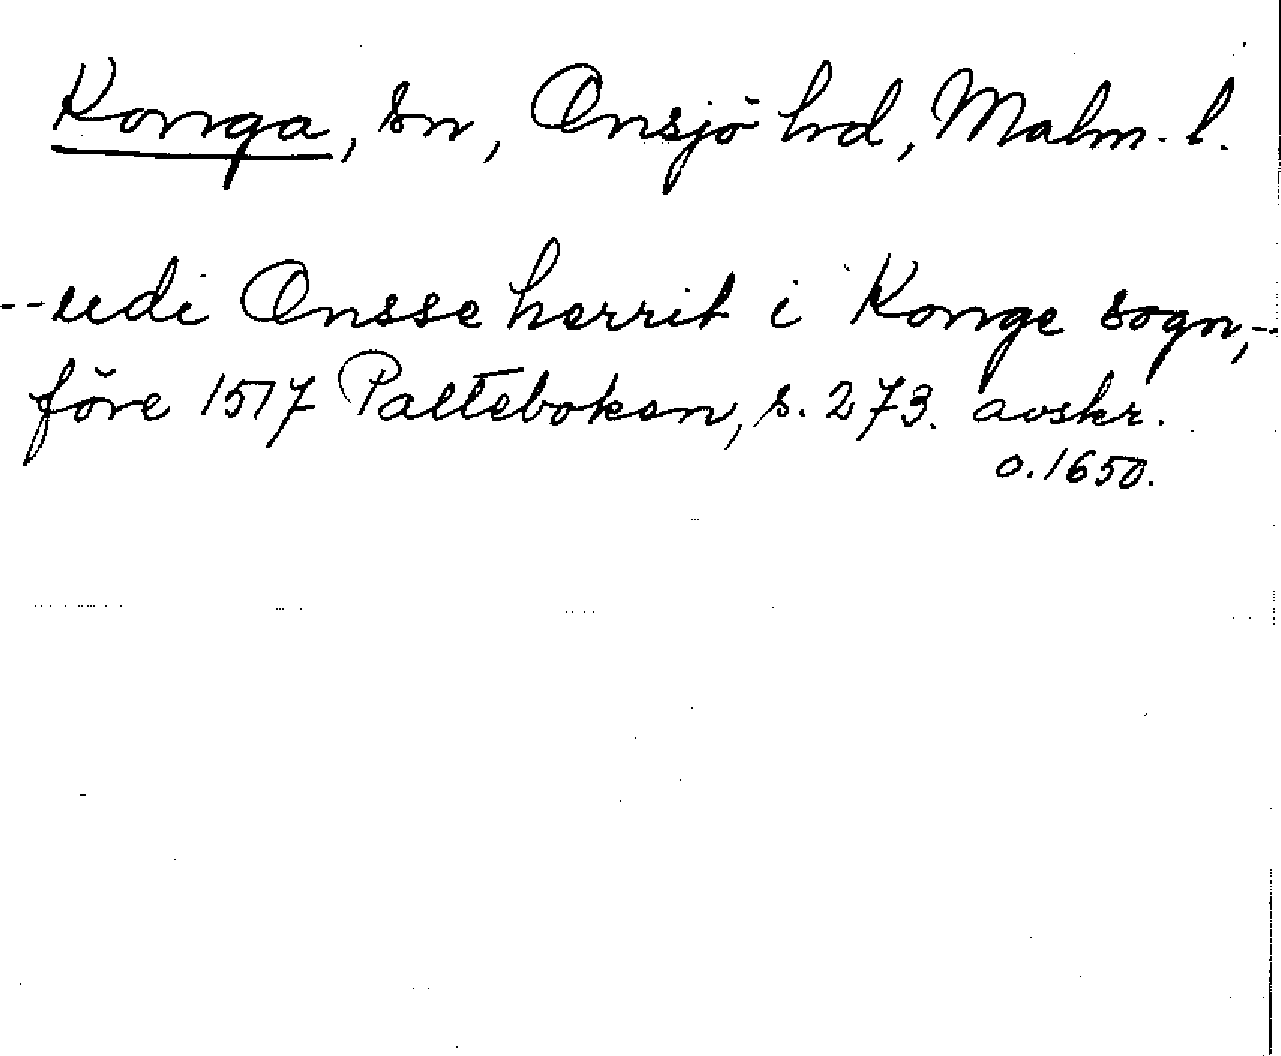 Konga, sn, Onsjö hd, Malm. l.
-- udi Onsse herrit i Konge sogn, --
före 1517 Palteboken, s. 273. avskr.
o. 1650.